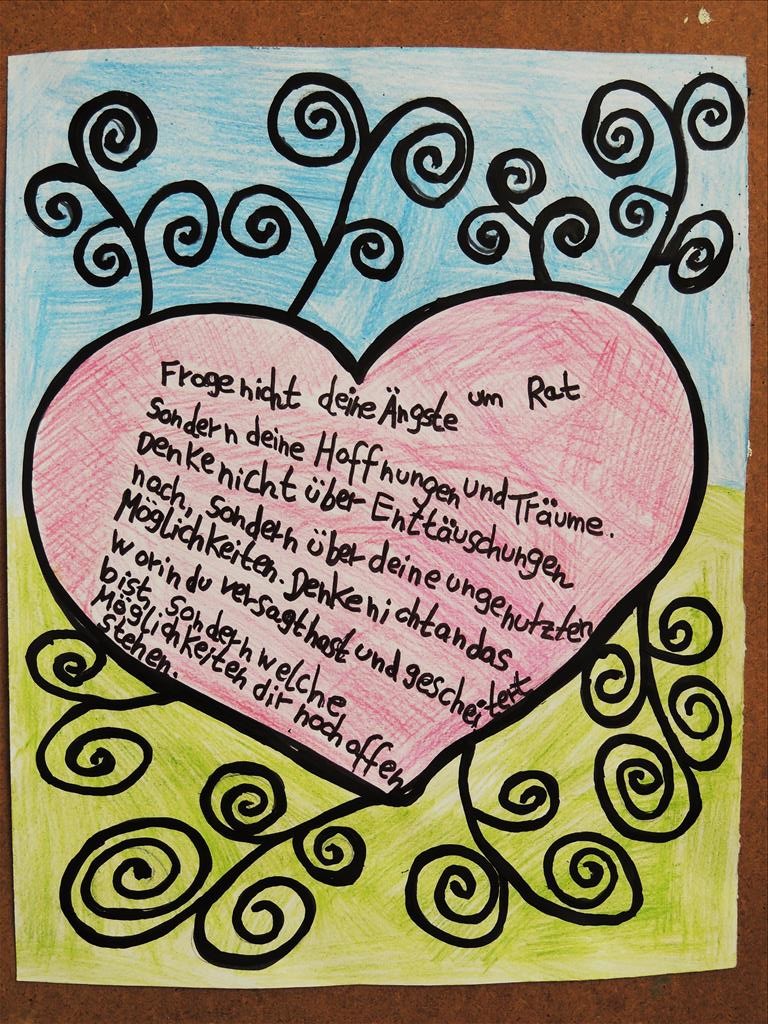 Frage nicht deine Ängste um Rat
Sondern deine Hoffnungen und Träume.
Denke nicht über Enttäuschungen
nach, sondern über deine ungenutzten
Möglichkeiten. Denke nicht an das
worin du versagt hast und gescheitert
bist, sondern welche
Möglichkeiten dir noch offen
stehen.